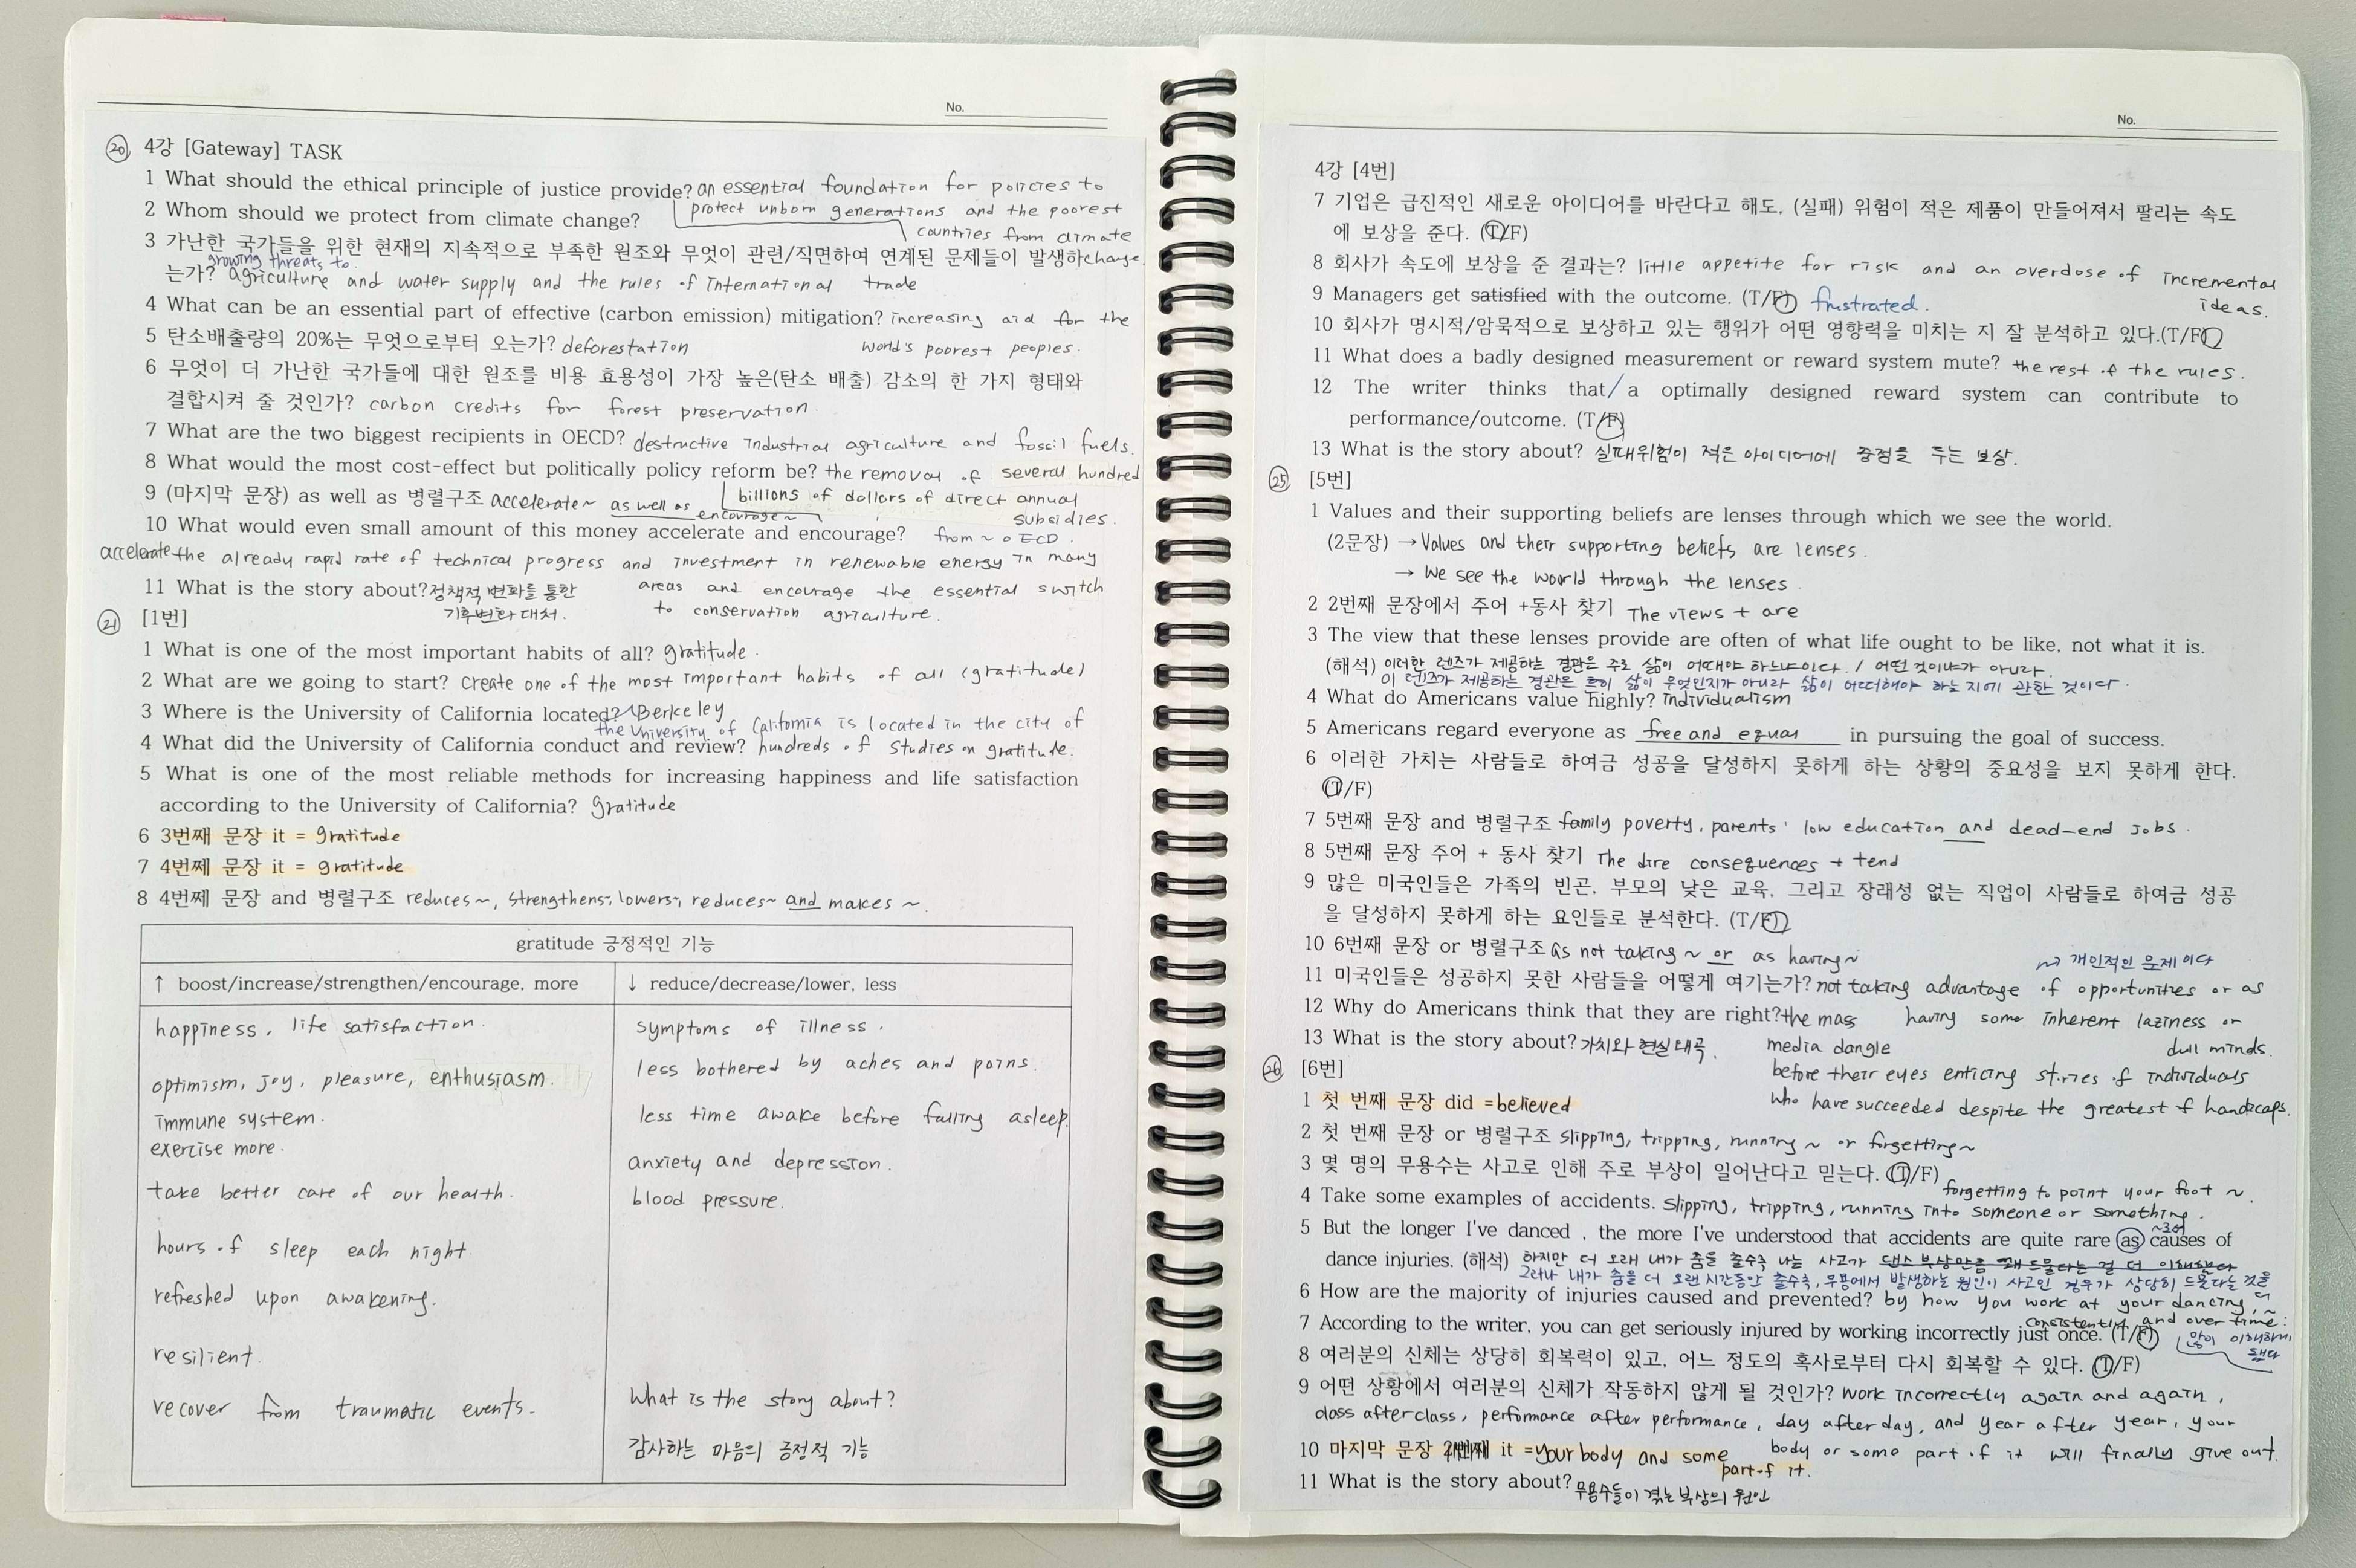 No.
20 4강 [Gateway] TASK
1 What should the ethical principle of justice provide? an essential foundation for policies to
2 Whom should we protect from climate change? protect unborn generations and the poorest
countries from climate
3 가난한 국가들을 위한 현재의 지속적으로 부족한 원조와 무엇이 관련/직면하여 연계된 문제들이 발생하 change.
growing threats to
는가? agriculture and water supply and the rules of international trade
4 What can be an essential part of effective (carbon emission) mitigation? increasing aid for the
5 탄소배출량의 20%는 무엇으로부터 오는가? deforestation world's poorest peoples.
6 무엇이 더 가난한 국가들에 대한 원조를 비용 효용성이 가장 높은(탄소 배출) 감소의 한 가지 형태와
결합시켜 줄 것인가? carbon credits for forest preservation.
7 What are the two biggest recipients in OECD? destructive industrial agriculture and fossil fuels.
8 What would the most cost-effect but politically policy reform be? the removal of several hundred
9 (마지막 문장) as well as 병렬구조 accelerate~ as well as encourage~ billions of dollars of direct annual
subsidies.
10 What would even small amount of this money accelerate and encourage? from ~ OECD.
accelerate the already rapid rate of technical progress and investment in renewable energy in many
11 What is the story about? 정책적 변화를 통한 areas and encourage the essential switch
기후변화 대처. to conservation agriculture.
21 [1번]
1 What is one of the most important habits of all? gratitude.
2 What are we going to start? create one of the most important habits of all (gratitude)
3 Where is the University of California located? Berkeley
the University of California is located in the city of
4 What did the University of California conduct and review? hundreds of studies on gratitude.
5 What is one of the most reliable methods for increasing happiness and life satisfaction
according to the University of California? gratitude
6 3번째 문장 it = gratitude
7 4번째 문장 it = gratitude
8 4번째 문장 and 병렬구조 reduces~, strengthens~, lowers~, reduces~ and makes ~.
gratitude 긍정적인 기능
↑ boost/increase/strengthen/encourage, more
happiness, life satisfaction.
optimism, joy, pleasure, enthusiasm.
immune system.
exercise more.
take better care of our health.
hours of sleep each night
refreshed upon awakening.
resilient.
recover from traumatic events.
↓ reduce/decrease/lower, less
symptoms of illness.
less bothered by aches and pains.
less time awake before falling asleep.
anxiety and depression.
blood pressure.
What is the story about?
감사하는 마음의 긍정적 기능
No.
4강 [4번]
7 기업은 급진적인 새로운 아이디어를 바란다고 해도, (실패) 위험이 적은 제품이 만들어져서 팔리는 속도
에 보상을 준다. (T/F)
8 회사가 속도에 보상을 준 결과는? little appetite for risk and an overdose of incremental
ideas.
9 Managers get satisfied with the outcome. (T/F) frustrated.
10 회사가 명시적/암묵적으로 보상하고 있는 행위가 어떤 영향력을 미치는 지 잘 분석하고 있다.(T/F)
11 What does a badly designed measurement or reward system mute? the rest of the rules.
12 The writer thinks that/ a optimally designed reward system can contribute to
performance/outcome. (T/F)
13 What is the story about? 실패위험이 적은 아이디어에 중점을 두는 보상.
25 [5번]
1 Values and their supporting beliefs are lenses through which we see the world.
(2문장) → Values and their supporting beliefs are lenses.
→ We see the world through the lenses.
2 2번째 문장에서 주어 +동사 찾기 The views + are
3 The view that these lenses provide are often of what life ought to be like, not what it is.
(해석) 이러한 렌즈가 제공하는 경관은 주로 삶이 어때야 하느냐이다. / 어떤 것이냐가 아니라.
이 렌즈가 제공하는 경관은 흔히 삶이 무엇인지가 아니라 삶이 어떠해야 하는 지에 관한 것이다.
4 What do Americans value highly? individualism
5 Americans regard everyone as free and equal in pursuing the goal of success.
6 이러한 가치는 사람들로 하여금 성공을 달성하지 못하게 하는 상황의 중요성을 보지 못하게 한다.
(T/F)
7 5번째 문장 and 병렬구조 family poverty, parents' low education and dead-end jobs.
8 5번째 문장 주어 + 동사 찾기 The dire consequences + tend
9 많은 미국인들은 가족의 빈곤, 부모의 낮은 교육, 그리고 장래성 없는 직업이 사람들로 하여금 성공
을 달성하지 못하게 하는 요인들로 분석한다. (T/F)
10 6번째 문장 or 병렬구조 as not taking ~ or as having~
→ 개인적인 문제이다
11 미국인들은 성공하지 못한 사람들을 어떻게 여기는가? not taking advantage of opportunities or as
12 Why do Americans think that they are right? the mass having some inherent laziness or
13 What is the story about? 가치와 현실 왜곡. media dangle dull minds.
26 [6번] before their eyes enticing stories of individuals
1 첫 번째 문장 did = believed who have succeeded despite the greatest of handicaps.
2 첫 번째 문장 or 병렬구조 slipping, tripping, running ~ or forgetting~
3 몇 명의 무용수는 사고로 인해 주로 부상이 일어난다고 믿는다. (T/F)
forgetting to point your foot ~.
4 Take some examples of accidents. slipping, tripping, running into someone or something.
5 But the longer I've danced , the more I've understood that accidents are quite rare as causes of
dance injuries. (해석) 하지만 더 오래 내가 춤을 출수록 나는 사고가 댄스 부상만큼 꽤 드물다는 걸 더 이해했다
그러나 내가 춤을 더 오랜 시간동안 출수록, 무용에서 발생하는 원인이 사고인 경우가 상당히 드물다는 것을
6 How are the majority of injuries caused and prevented? by how you work at your dancing,
consistently and over time.
7 According to the writer, you can get seriously injured by working incorrectly just once. (T/F) 많이 이해하게
됐다
8 여러분의 신체는 상당히 회복력이 있고, 어느 정도의 혹사로부터 다시 회복할 수 있다. (T/F)
9 어떤 상황에서 여러분의 신체가 작동하지 않게 될 것인가? work incorrectly again and again,
class after class, performance after performance, day after day, and year after year, your
10 마지막 문장 it = your body and some body or some part of it will finally give out.
part of it.
11 What is the story about? 무용수들이 겪는 부상의 원인